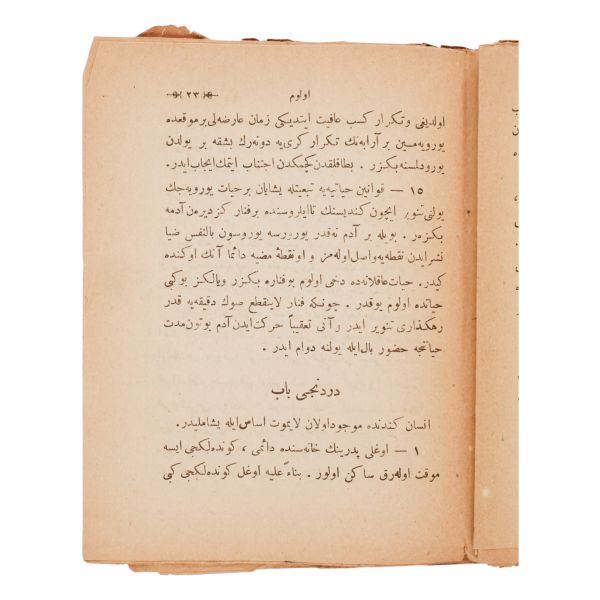 اولوم
﴿ ٢٣ ﴾
اولدیغی و تکرار کسب عافیت ایتدیکی زمان عارضه‌لی بر موقعده
یورویه‌مین بر آرابه‌نك تکرار کری‌یه دونه‌رك بشقه بر یولدن
یورودلمسنه بکزر . بطاقلقدن کچمکدن اجتناب ایتمك ایجاب ایدر.
١٥ — قوانین حیاتیه‌یه تبعیتله یشایان بر حیات یورویه‌جك
یولنی تنویر ایچون کندیسنك تا ایلروسنده بر فنار کزدیره‌ن آدمه
بکزه‌ر . بویله بر آدم نه‌قدر یورورسه یوروسون بالنفس ضیا
نشر ایدن نقطه‌یه واصل اوله‌مز و او نقطهٔ مضیه دائما آنك اوکنده
کیدر. حیات عاقلانه‌ده دخی اولوم بو فناره بکزر و یالکز بو کبی
حیاتده اولوم یوقدر . چونکه فنار لاینقطع صوك دقیقه‌یه قدر
رهکذاری تنویر ایدر و آنی تعقیباً حرکت ایدن آدم بوتون مدت
حیاتنجه حضور بال ایله یولنه دوام ایدر .
دردنجی باب
انسان کندنده موجود اولان لایموت اساس ایله یشاملیدر.
١ — اوغلی پدرینك خانه‌سنده دائمی ، کونده‌لکجی ایسه
موقت اوله‌رق ساکن اولور . بناءً علیه اوغل کونده‌لکجی کبی